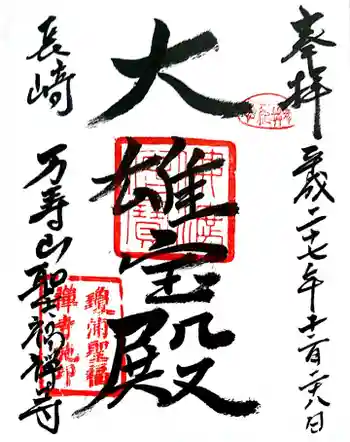 奉拝
平成二十七年十二月二十八日
大雄宝殿
長崎
万寿山聖福禅寺
瓊浦聖福
禅寺之印